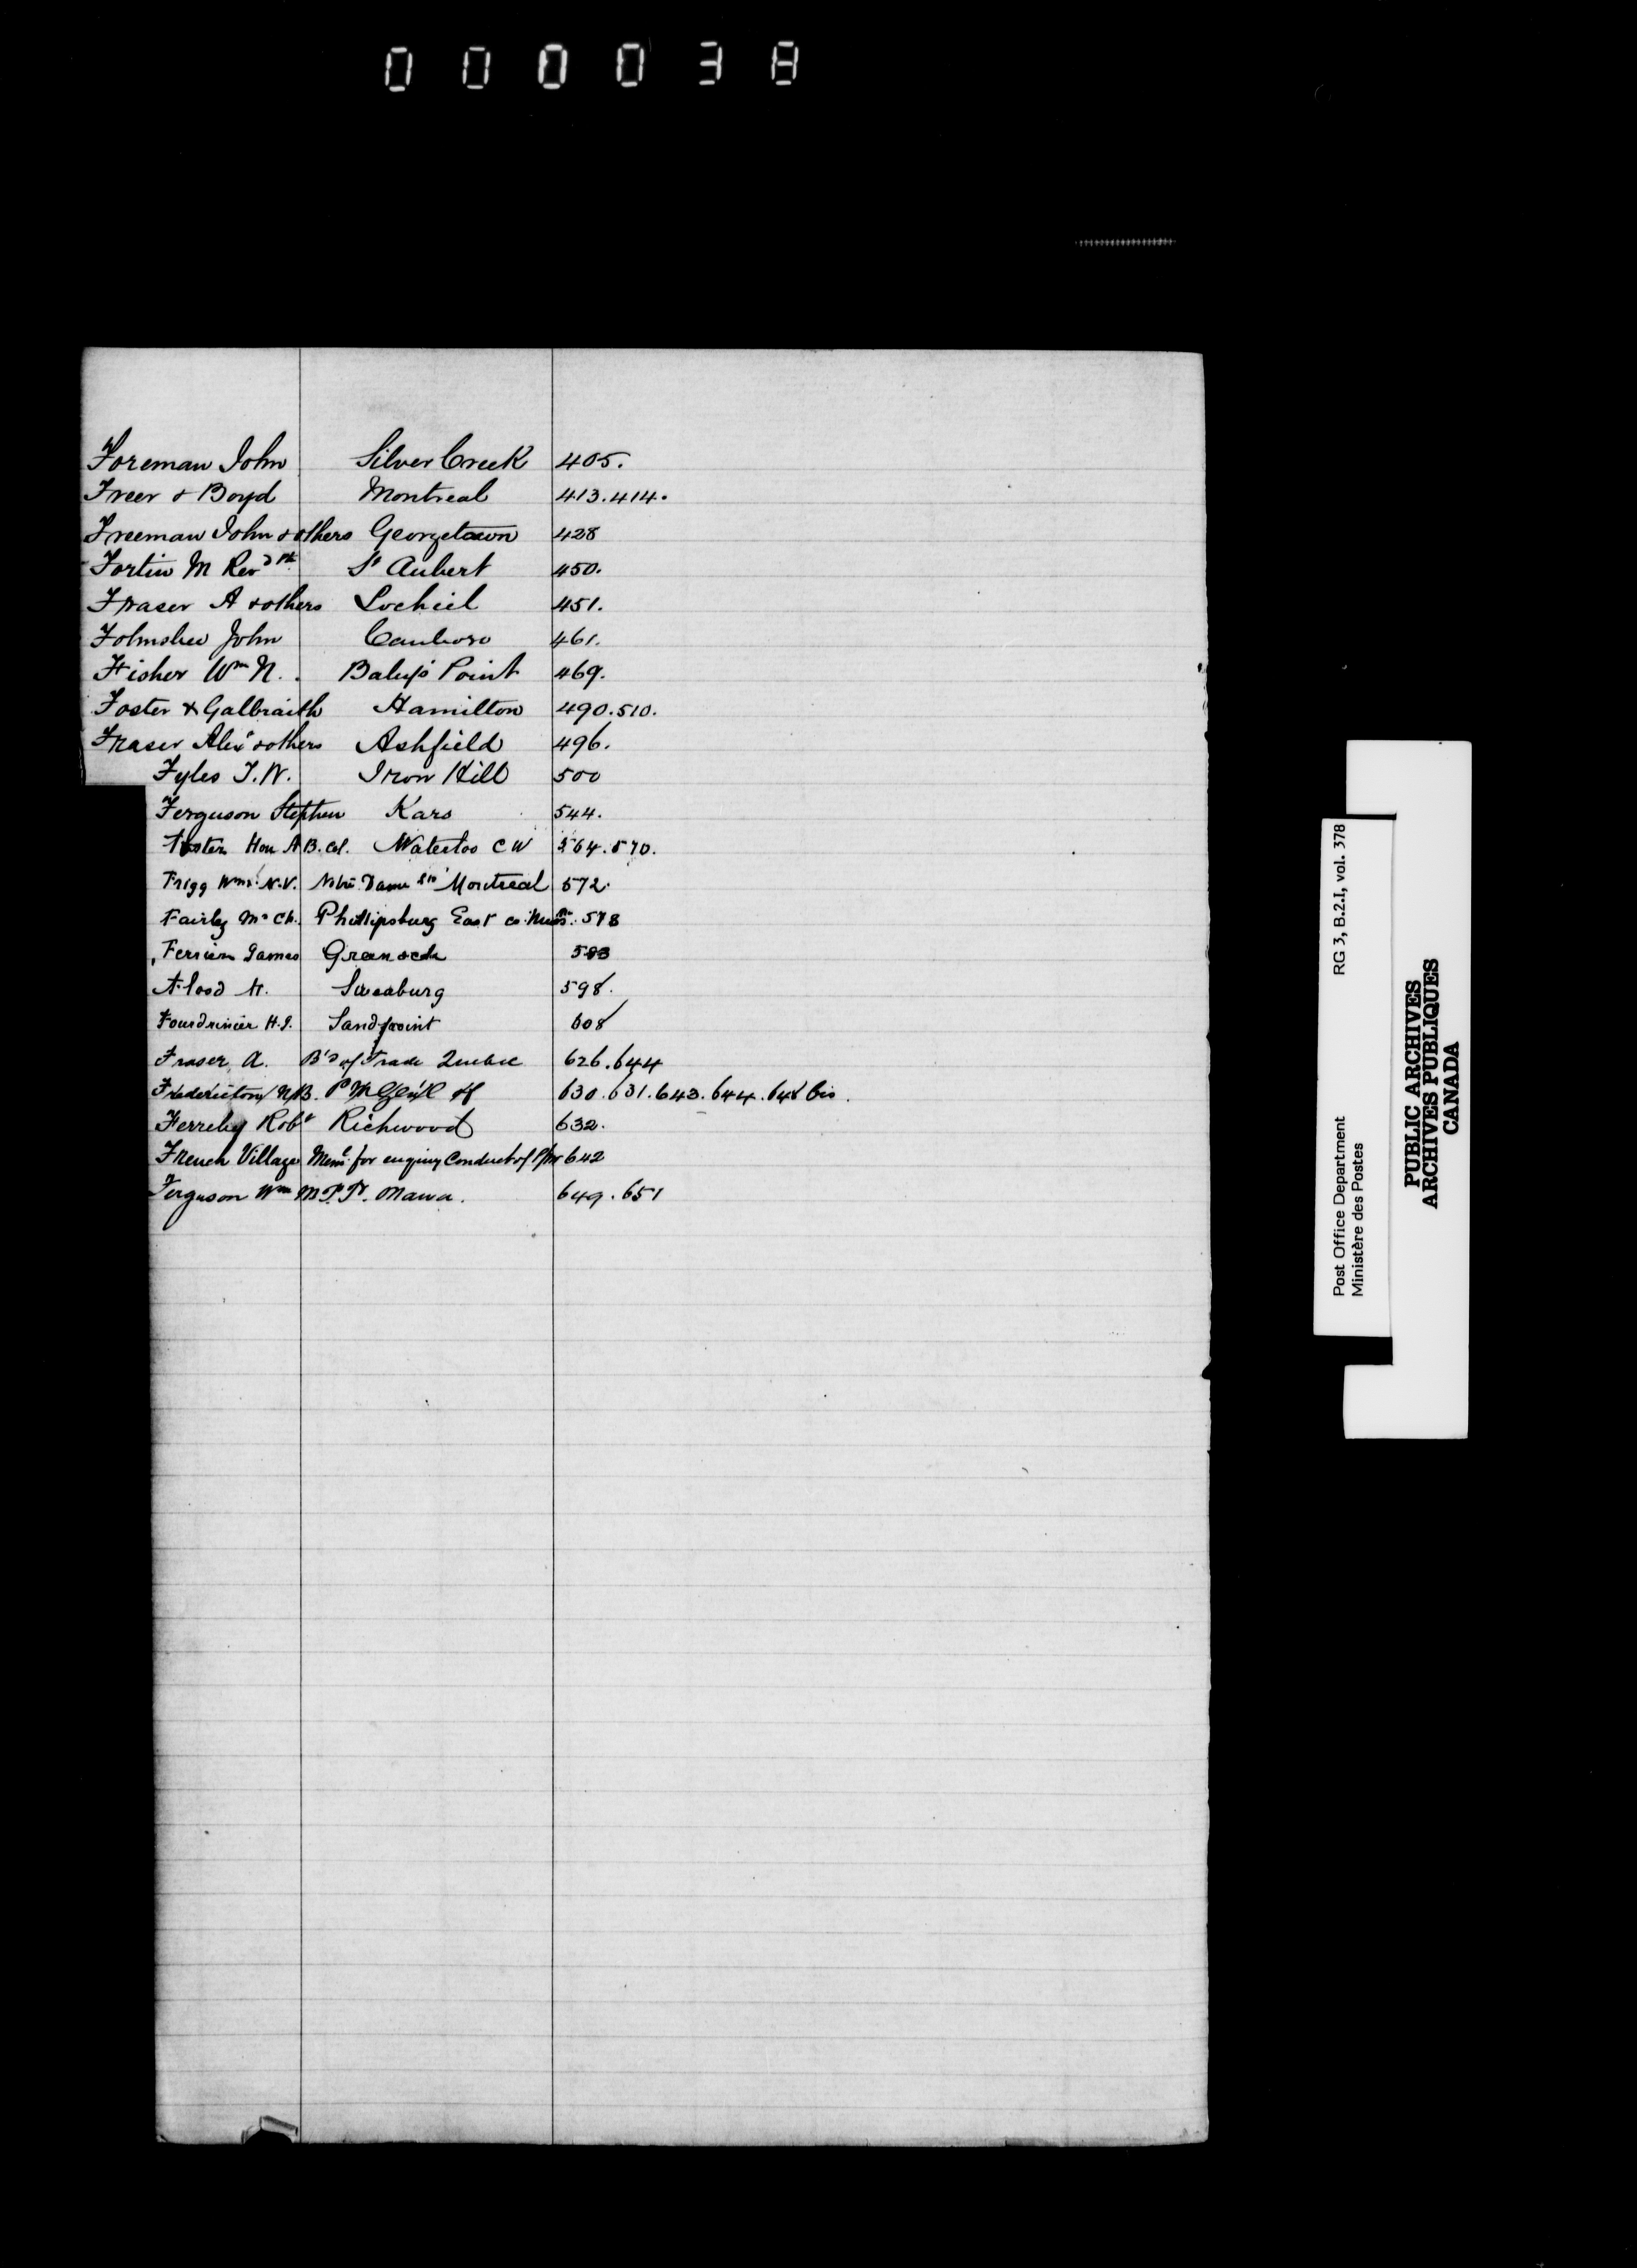 000038
Foreman John Silver Creek 405.
Freer & Boyd Montreal 413.414.
Freeman John & others Georgetown 428
Fortin M Revd St Aubert 450.
Fraser A & others Lochiel 451.
Folmsbee John Canboro 461.
Fisher Wm N. Point 469.
Foster & Galbraith Hamilton 490.510.
Fraser Alexr & others Ashfield 496.
Fyles T.W. Iron Hill 500
Ferguson Stephen Kars 544.
Foster Hon A B. Col. Waterloo C W 564.570.
Frigg Wm N.V. Notre Dame Montreal 572.
Fairly Phillipsburg East co 578
Ferrier James Greenock
Flood H. Sweaburg 598.
Fourdrinier H.J. Sandpoint 608
Fraser A. B'd of Trade Quebec 626.644
Fredericton N B. P M Gen'l of 630.631.643.644.648 bis.
Ferreby Robt Richwood 632.
French Village Meml for enquiry Conduct of P/mr 642
Ferguson Wm M.P.P. Ottawa. 649.651
RG 3, B.2.I, vol. 378
Post Office Department
Ministère des Postes
PUBLIC ARCHIVES
ARCHIVES PUBLIQUES
CANADA